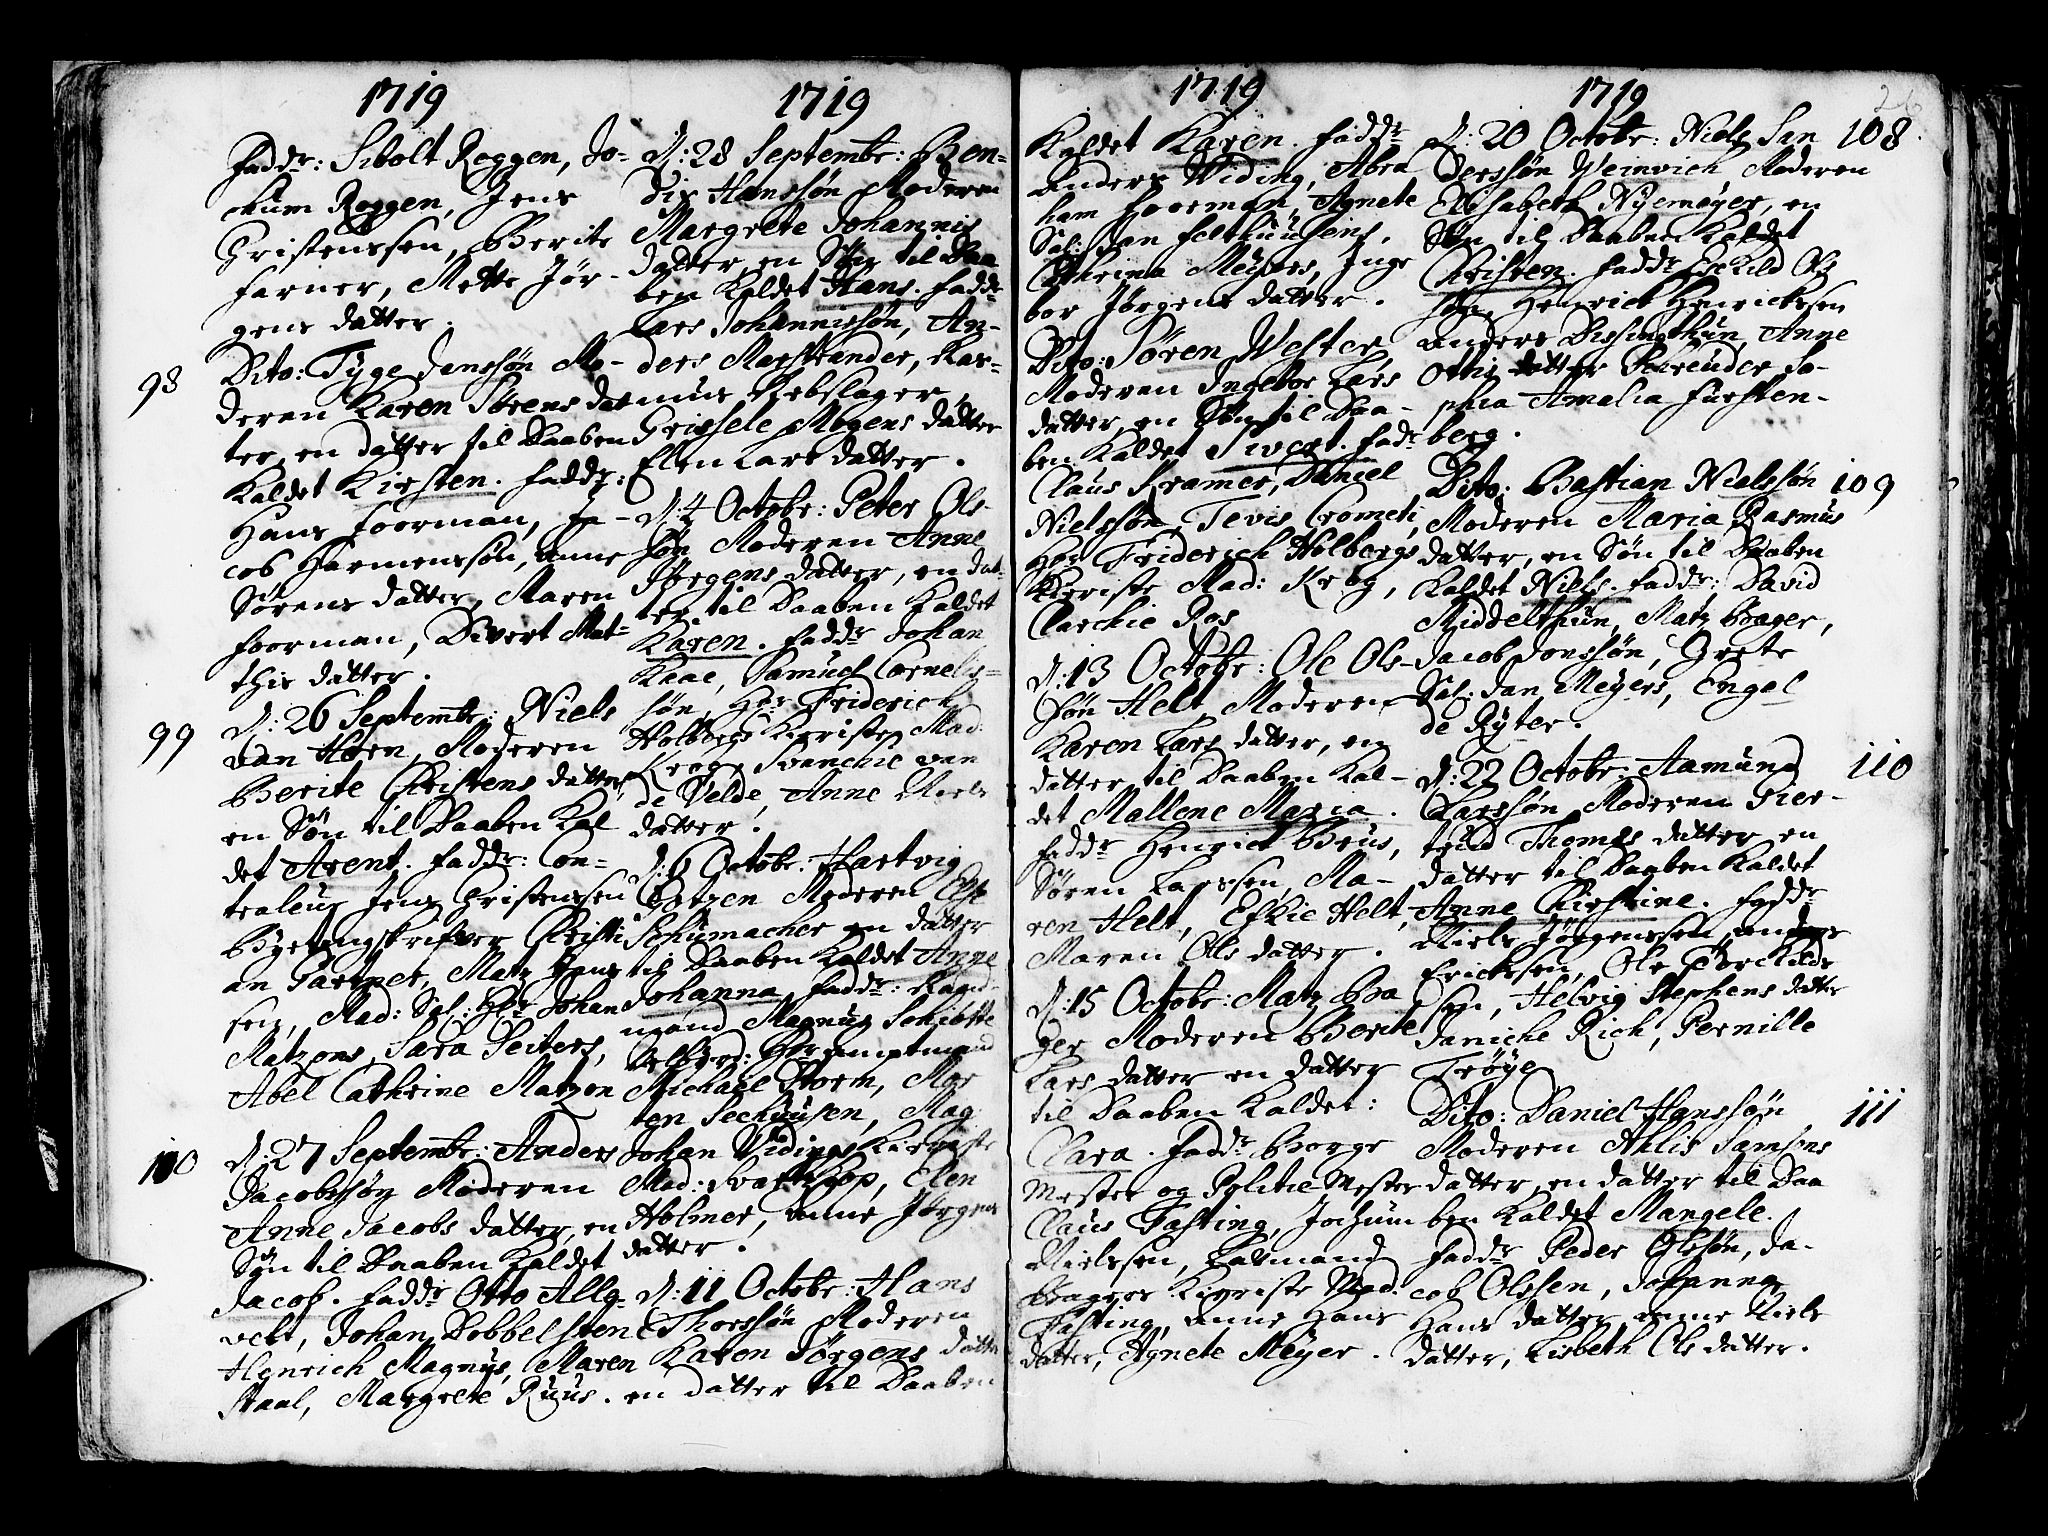 1719
Fadd: Sibolt Roggen, Jo-
chum Roggen, Jens
Christenssen, Berite
Farner, Mette Jør-
gens datter.
98
Dito: Tyge Jenssøn Mo-
deren Karen Sørens dat-
ter, en datter til Daaben
Kaldet Kirsten. Fadd:
Hans Foorman, Ja-
cob Harmenssøn, Anne
Sørens datter, Maren
Foorman, Divert Mat-
this datter.
99
d: 26 Septembr: Niels
van Horn, Moderen
Berite Christens datter
en Søn til Daaben Kal
det Arent. Fadd: Con-
traleur Jens Christenssen
Byetingskrifver Christi
an Partner, Matz Hans
sen, Mad: Sal: Hr Johan
Matzons, Sara Seiters,
Abel Cathrine Matzon
100
d: 27 Septembr: Anders
Jacobssøn Moderen
Anne Jacobs datter, en
Søn til Daaben Kaldet
Jacob. Fadd: Otto Allg-
velt, Johan Dobbelsten
Henrich Magnus, Maren
Staal, Margrete Ruus.
1719
d: 28 Septembr: Ben-
dix Hanssøn Moderen
Margrete Johannis
datter, en Søn til Daa
ben Kaldet Hans. Fadd:
Lars Johannissøn, An-
ders Marstrander, Ras-
mus Rebslager,
Grissele Mogens datter
Elen Lars datter.
d: 4 Octobr: Peter Ols
søn Moderen Anne
Jørgens datter, en dat-
ter til Daaben Kaldet
Karen. Fadd: Johan
Kaae, Samuel Cornelis-
søn, Hr Friderich
Holbergs Kieriste Mad:
Krog, Svanchie van
de Velde, Anne Niels
datter.
d: 6 Octobr: Hartvig
Gotzen Moderen Else
Schumacher en datter
til Daaben Kaldet Anne
Johanna. Fadd: Raad-
mand Magnus Schiøtte
Hr Amptmand
Michael Storm, Mor
ten Seehuusen, Mag:
Johan Vidings Kieriste
Mad: Svartskop, Elen
Holmer, Anne Jørgens
datter.
d: 11 Octobr: Hans
Thorssøn Moderen
Karen Jørgens datter
en datter til Daaben
1719
Kaldet Karen. Fadd:
Anders Widing, Abra
ham Foorman, Agnete
Sal: Jan Felthuusens,
Cathrina Meyers, Inge
bor Jørgens datter.
Dito: Søren Wester,
Moderen Ingebor Lars
datter, en Søn til Daa-
ben Kaldet Sivert. Fad:
Claus Kramer, Daniel
Nielssøn, Tevis Crometi,
Her Friderich Holbergs
Kieriste Mad: Krog,
Clarchie Ros
d: 13 Octobr: Ole Ols-
søn Helt, Moderen
Karen Lars datter, en
datter til Daaben Kal-
det Mallene Maria.
Fadd: Henrich Brus,
Søren Larssen, Ma-
ren Helt, Efkie Helt,
Maren Ols datter.
d: 15 Octobr: Matz Ba
ger Moderen Berite
Lars datter en datter
til Daaben Kaldet:
Clara. Fadd: Borge
Mester og Politie Mester
Claus Fasting, Jochum
Nielssen, Raadmand
Bagers Kieriste Mad:
Fasting, Anne Hans
datter, Agnete Meyer.
1719
26
108.
d: 20 Octobr: Niels San
derssøn Weinrich Moderen
Elisabeth Nyemeyer, en
Søn til Daaben Kaldet
Christen. Fadd: Eskild Ols
søn, Henrich Henrickssen
Anders Dissingthun, Anne
Otthis datter Schreuder, So-
phia Amalia Fursten-
berg.
109
Dito: Bastian Nielssøn
Moderen Maria Rasmus
datter, en Søn til Daaben
Kaldet Niels. Fadd: David
Middelthun, Matz Bager,
Jacob Jonssøn, Grete
Sal: Jan Meyers, Engel
de Ryter.
110
d: 22 Octobr: Aamund
Larssøn Moderen Gier-
trud Thomes datter en
datter til Daaben Kaldet
Anne Kirstine. Fadd:
Niels Jørgenssen, Anders
Erickssen, Ole Torkilds
sen, Helvig Stephens datter
Janiche Rich, Pernille
Trøye
111
Dito: Daniel Hanssøn
Moderen Ahlis Samsons
datter, en datter til Daa
ben Kaldet Mangele.
Fadd: Peder Olssøn, Ja-
cob Olssen, Johanna
Hans datter, Anne Niels
datter, Lisbeth Ols datter.